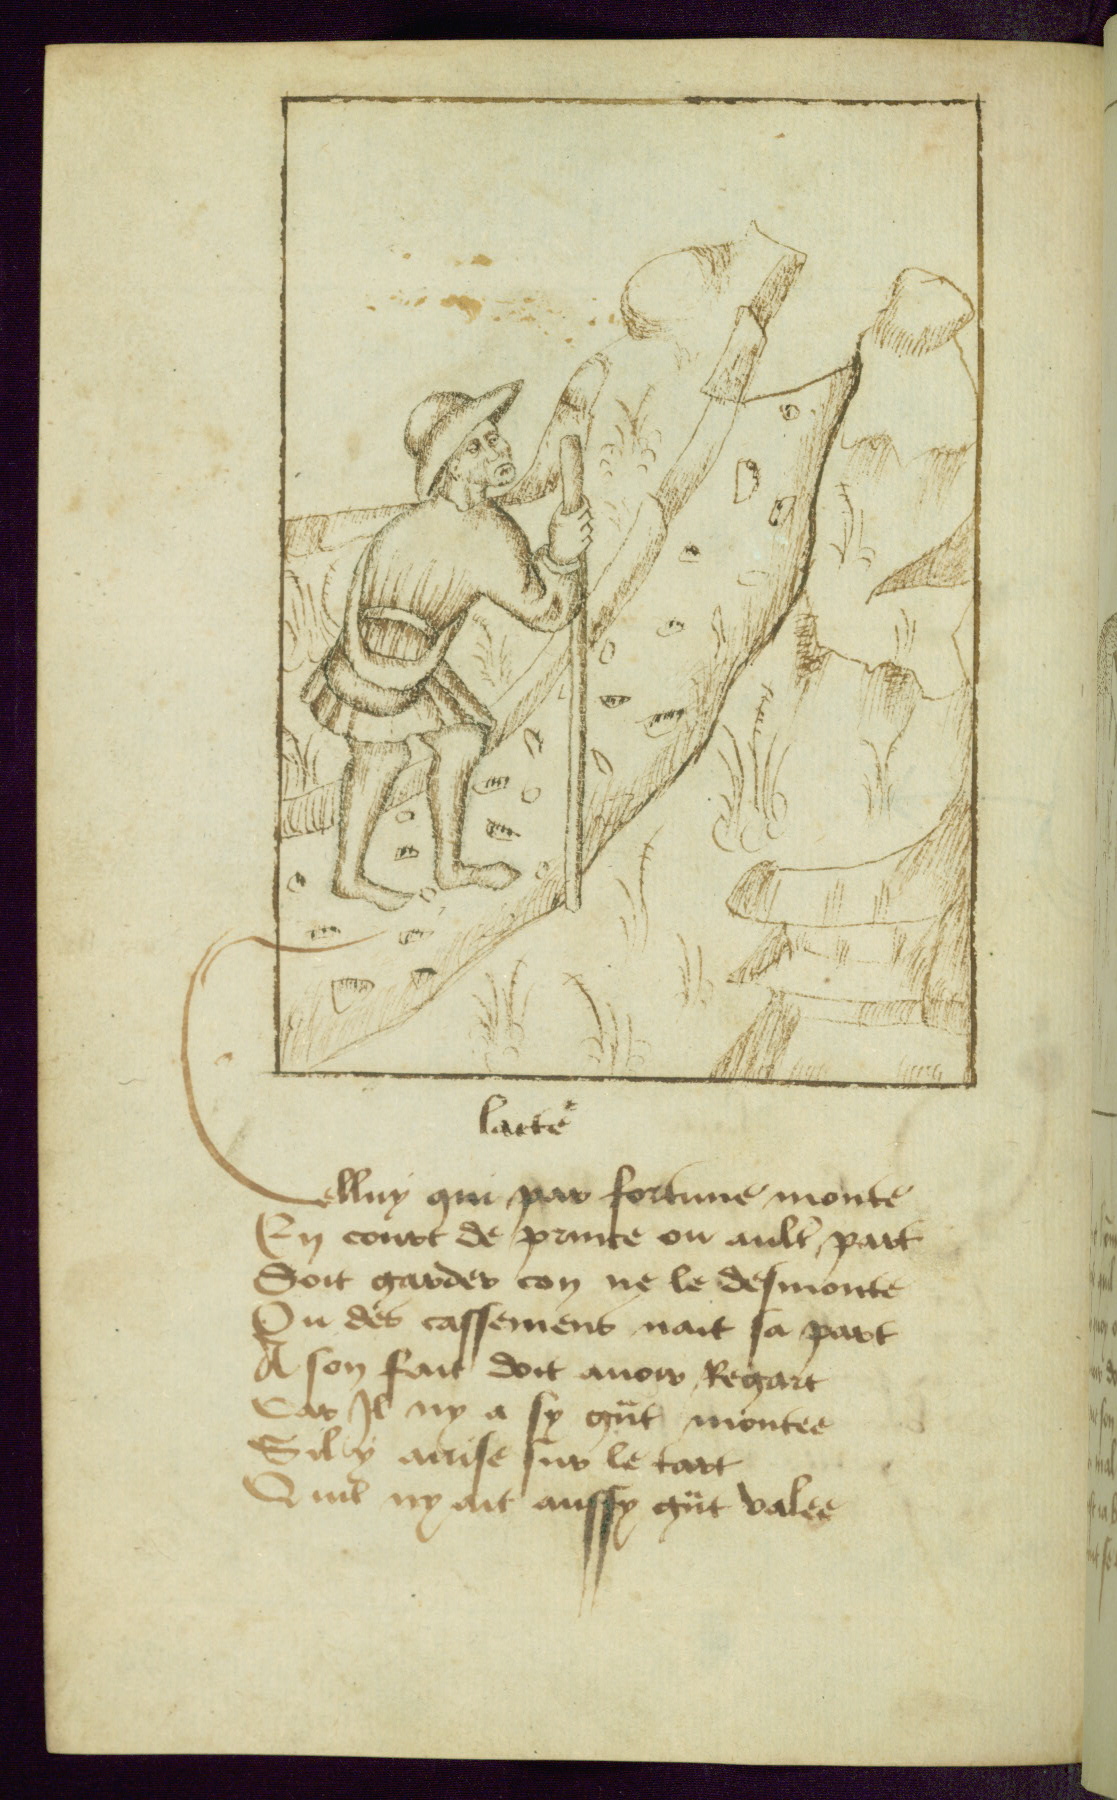 lacteˉ
Celluy qui par fortune monte
En court de prince ou ault' part
Doit garder con ne le desmonte
Ou des cassemens nait sa part
A son fait doit auoir Regart
Car Il ny a sy gñt montee
Sil y auise sur le tart
Quil ny ait aussy gñt valee